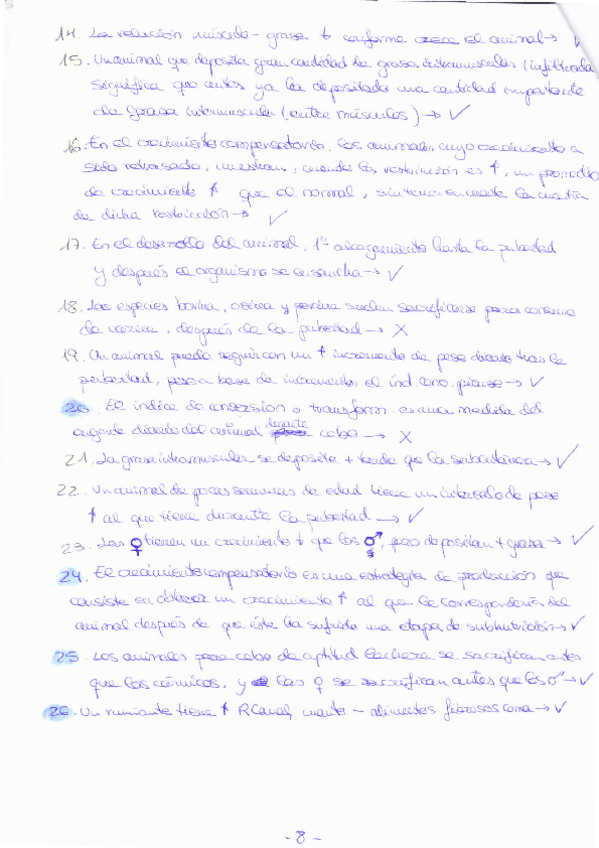 14. La relación músculo - grasa ↓ conforme crece el animal → ✓
15. Un animal que deposita gran cantidad de grasa intramuscular (infiltrada)
significa que antes ya ha depositado una cantidad importante
de grasa intermuscular (entre músculos) → ✓
16. En el crecimiento compensatorio, los animales cuyo crecimiento a
sido retrasado, muestran, cuando la restricción es ↑, un promedio
de crecimiento ↑ que al normal, sin tener en cuenta la cuantía
de dicha restricción → ✓
17. En el desarrollo del animal, 1º alargamiento hasta la pubertad
y después el organismo se ensancha → ✓
18. Las especies bovina, ovina y porcina suelen sacrificarse para consumo
de carne, después de la pubertad → X
19. Un animal puede seguir con un ↑ incremento de peso diario tras la
pubertad, pero a base de incrementar el índ. cono. pienso → ✓
20. El índice de conversión o transform. es una medida del
engorde diario del animal durante cebo → X
21. La grasa intramuscular se deposita + tarde que la subcutánea → ✓
22. Un animal de pocas semanas de edad tiene un intervalo de peso
↑ al que tiene durante la pubertad → ✓
23. Las ♀ tienen un crecimiento ↓ que los ♂, pero depositan + grasa → ✓
24. El crecimiento compensatorio es una estrategia de producción que
consiste en obtener un crecimiento ↑ al que le correspondería del
animal después de que éste ha sufrido una etapa de subnutrición → ✓
25. Los animales para cebo de aptitud lechera se sacrifican antes
que los cárnicos, y las ♀ se sacrifican antes que los ♂ → ✓
26. Un rumiante tiene ↑ RCanal, cuanto - alimentos fibrosos coma → ✓
- 8 -